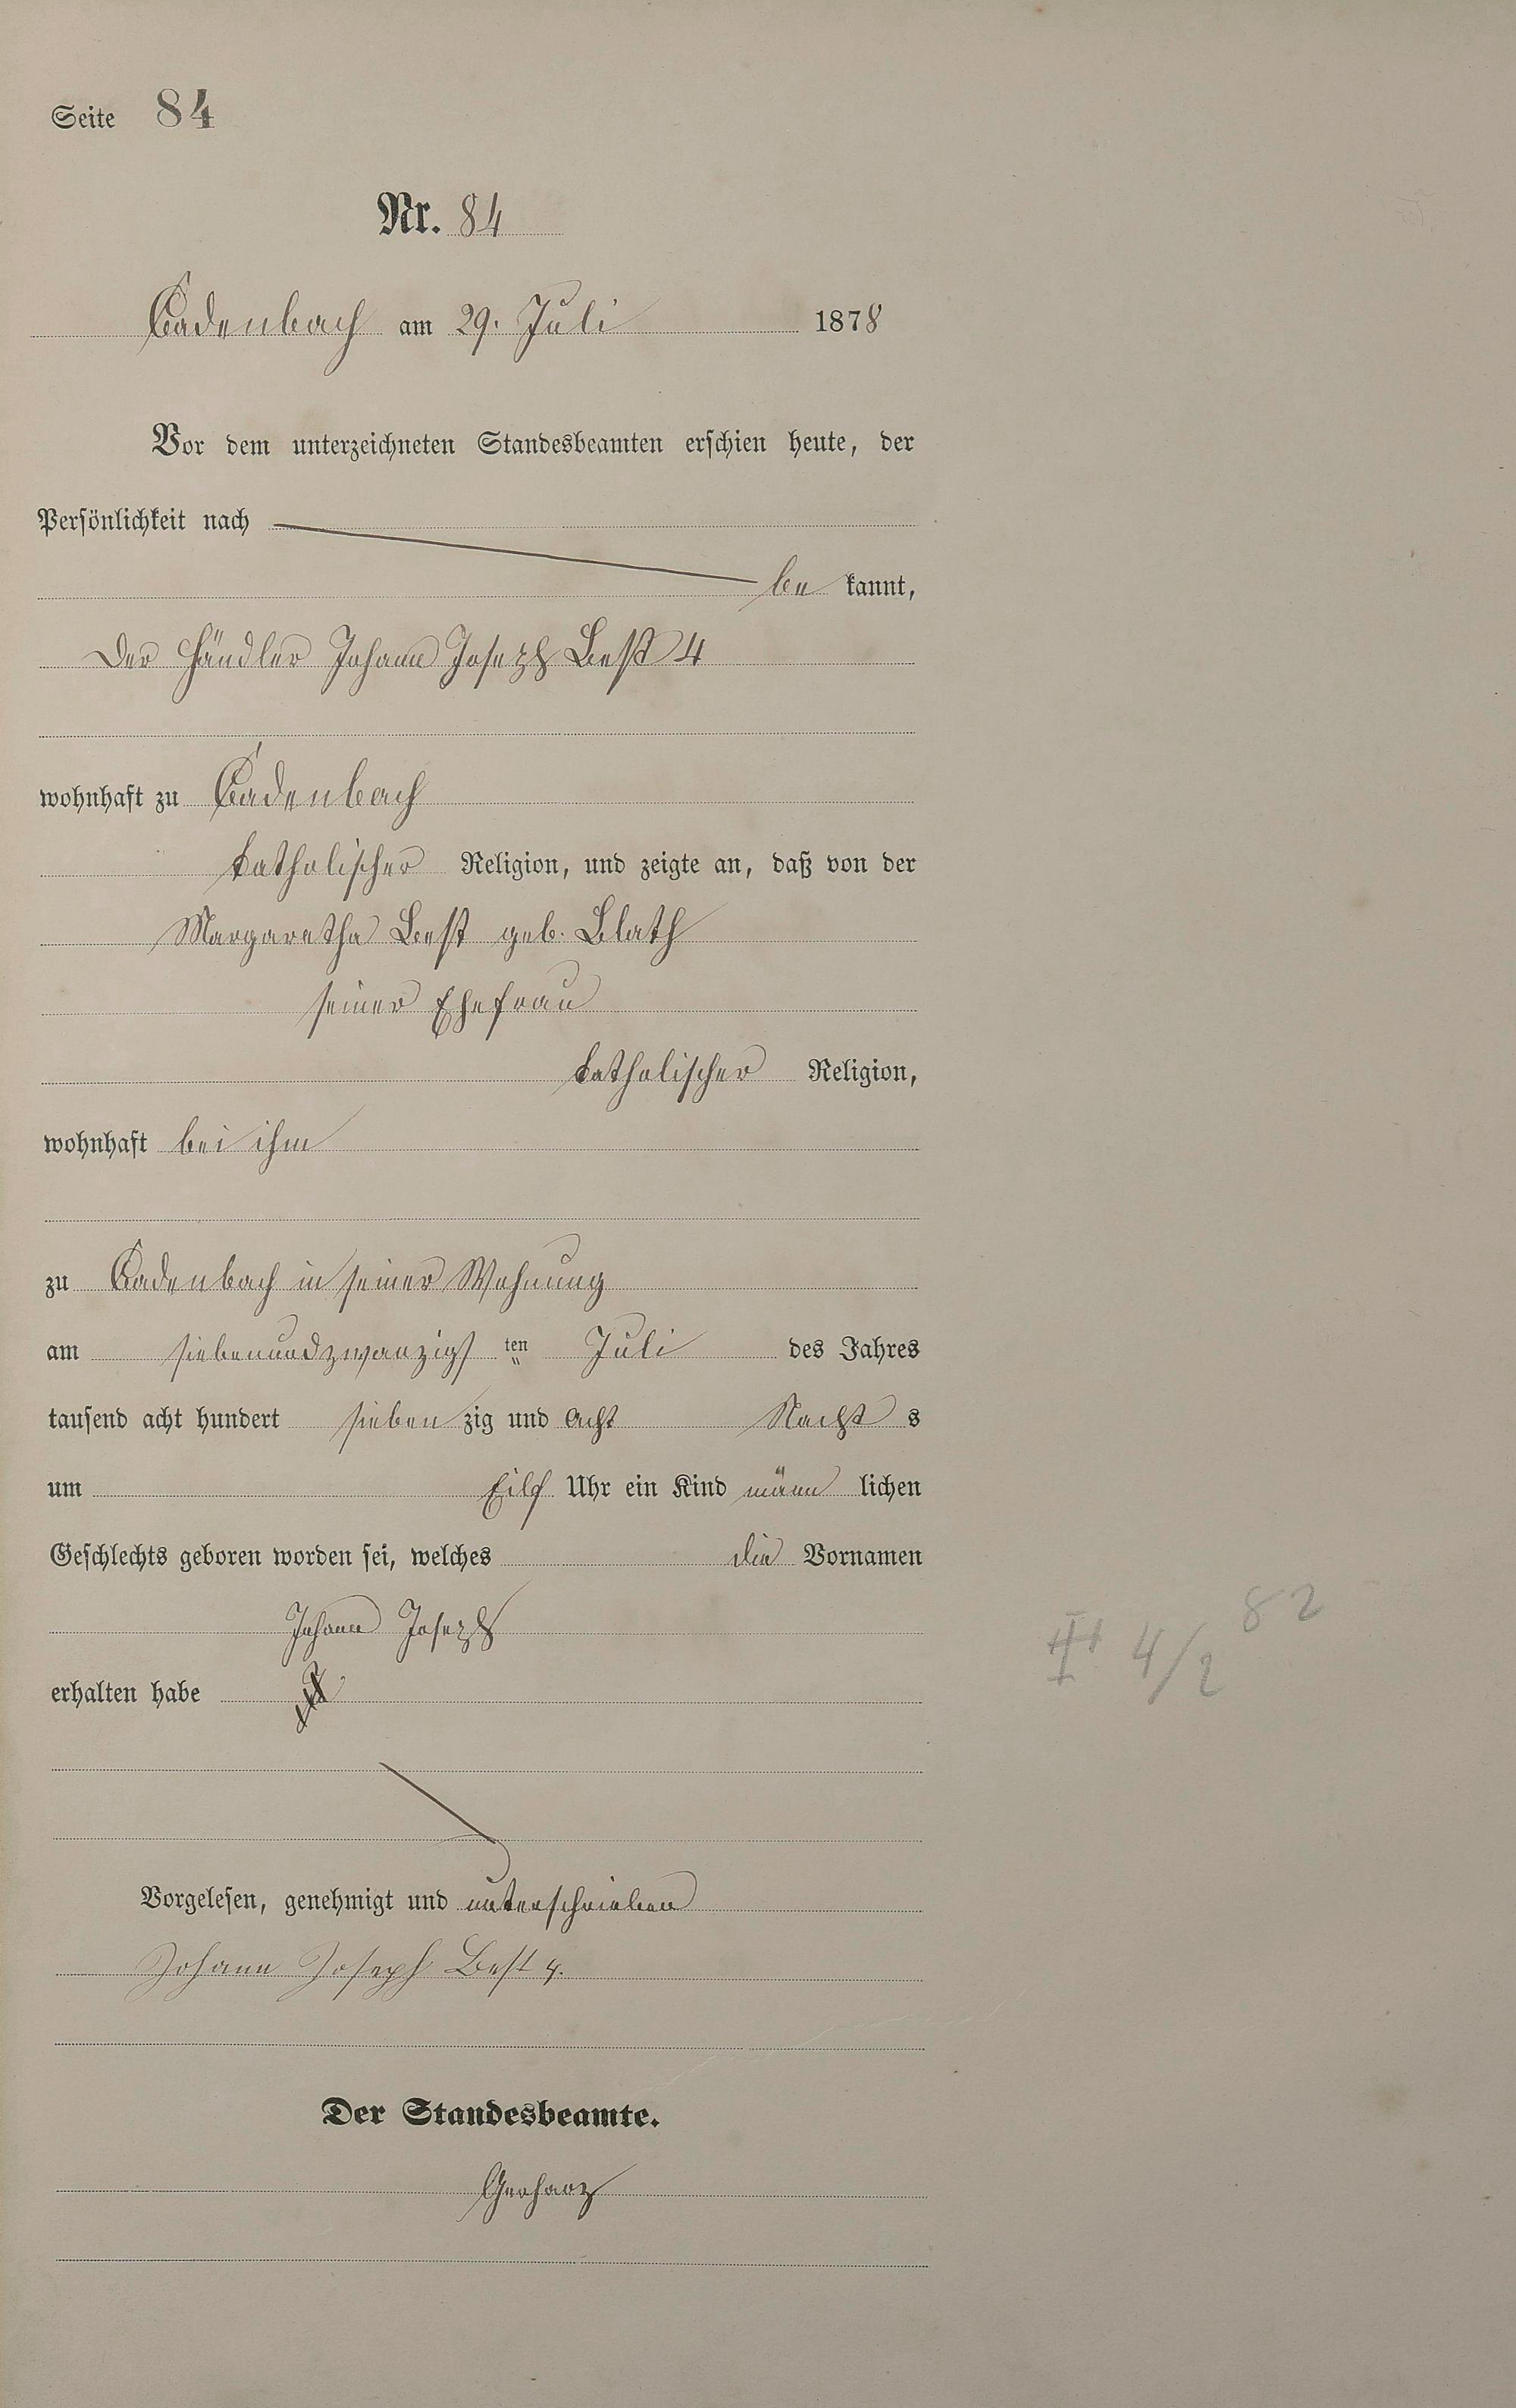 Seite 84
Nr. 84
Cadenbach am 29. Juli 1878
Vor dem unterzeichneten Standesbeamten erschien heute, der
Persönlichkeit nach
be kannt,
Der Händler Johann Joseph Best 4
wohnhaft zu Cadenbach
katholischer Religion, und zeigte an, daß von der
Margaretha Best geb. Blath
seiner Ehefrau
katholischer Religion,
wohnhaft bei ihm
zu Cadenbach in seiner Wohnung
am siebenundzwanzigs ten Juli des Jahres
tausend acht hundert sieben zig und acht Nacht s
um Eilf Uhr ein Kind männ lichen
Geschlechts geboren worden sei, welches die Vornamen
Johann Joseph
erhalten habe
4/2 82
Vorgelesen, genehmigt und unterschrieben
Johann Joseph Best 4.
Der Standesbeamte.
Gerharz